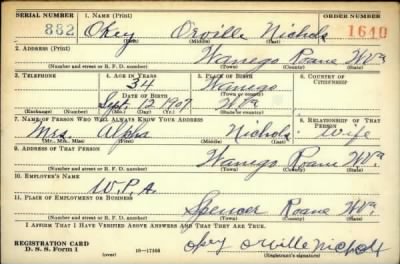 SERIAL NUMBER 1. NAME (Print) ORDER NUMBER
882 Okey Orville Nichols 1640
(First) (Middle) (Last)
2. ADDRESS (Print)
Wanego Roane W Va
(Number and street or R. F. D. number) (Town) (County) (State)
3. TELEPHONE 4. AGE IN YEARS 5. PLACE OF BIRTH 6. COUNTRY OF CITIZENSHIP
34 Wanego
DATE OF BIRTH (Town or county)
Sept. 12 1907 W Va
(Exchange) (Number) (Mo.) (Day) (Yr.) (State or country)
7. NAME OF PERSON WHO WILL ALWAYS KNOW YOUR ADDRESS 8. RELATIONSHIP OF THAT PERSON
Mrs. Alpha Nichols Wife
(Mr., Mrs., Miss) (First) (Middle) (Last)
9. ADDRESS OF THAT PERSON
Wanego Roane W Va.
(Number and street or R. F. D. number) (Town) (County) (State)
10. EMPLOYER'S NAME
W.P.A.
11. PLACE OF EMPLOYMENT OR BUSINESS
Spencer Roane W Va.
(Number and street or R. F. D. number) (Town) (County) (State)
I AFFIRM THAT I HAVE VERIFIED ABOVE ANSWERS AND THAT THEY ARE TRUE.
REGISTRATION CARD
D. S. S. Form 1 (over) okey orville Nichols
(Registrant's signature)